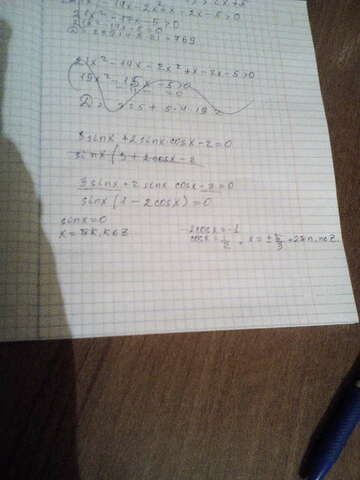 21x² - 17x - 5 > 0
21x² - 14x - 2x² + x - 2x - 5 > 0
19x² - 15x - 5 > 0
D = 225 + 5·4·19 =
3sinx + 2sinx cosx - 2 = 0
sinx (3 + 2cosx - 2
3sinx + 2sinx cosx - 2 = 0
sinx (1 - 2cosx) = 0
sinx = 0
x = πk, k∈Z
-2cosx = -1
cosx = 1/2, x = ± π/3 + 2πn, n∈Z.